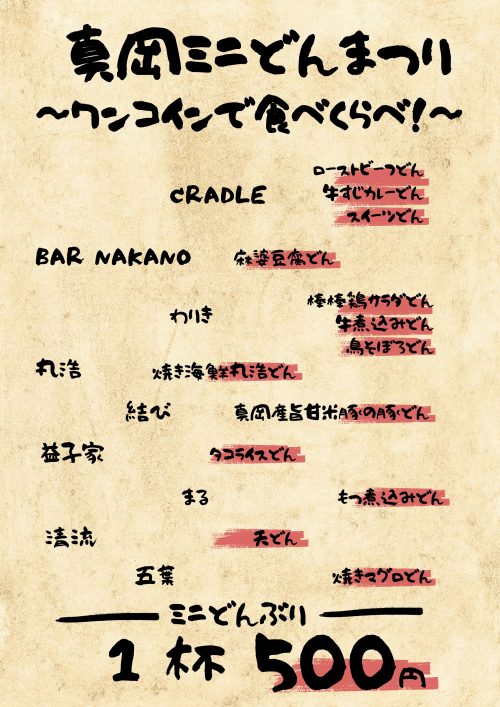 真岡ミニどんまつり
～ワンコインで食べくらべ！～
CRADLE
ローストビーフどん
牛すじカレーどん
スイーツどん
BAR NAKANO 麻婆豆腐どん
わりき
棒棒鶏サラダどん
牛煮込みどん
鳥そぼろどん
丸浩 焼き海鮮丸浩どん
結び 真岡産旨甘米豚の豚どん
益子家 タコライスどん
まる もつ煮込みどん
清流 天どん
五葉 焼きマグロどん
ミニどんぶり
1杯 500円